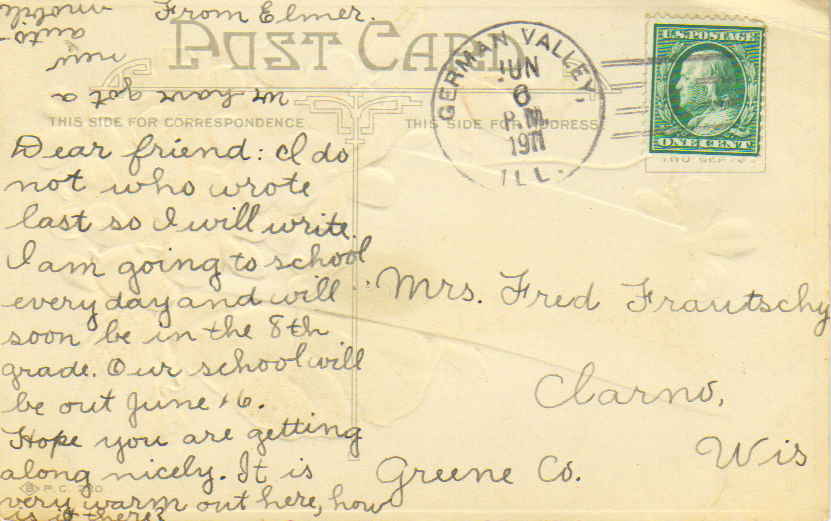 From Elmer.
POST CARD
We have got a
new
auto-
mobile
THIS SIDE FOR CORRESPONDENCE
THIS SIDE FOR ADDRESS
GERMAN VALLEY,
JUN
6
P.M.
1911
ILL.
U.S. POSTAGE
ONE CENT
Dear friend: I do
not who wrote
last so I will write.
I am going to school
every day and will
soon be in the 8th
grade. Our school will
be out June 16.
Hope you are getting
along nicely. It is
very warm out here, how
is it there?
Mrs. Fred Frautschy
Clarno,
Wis
Greene Co.
P.C.